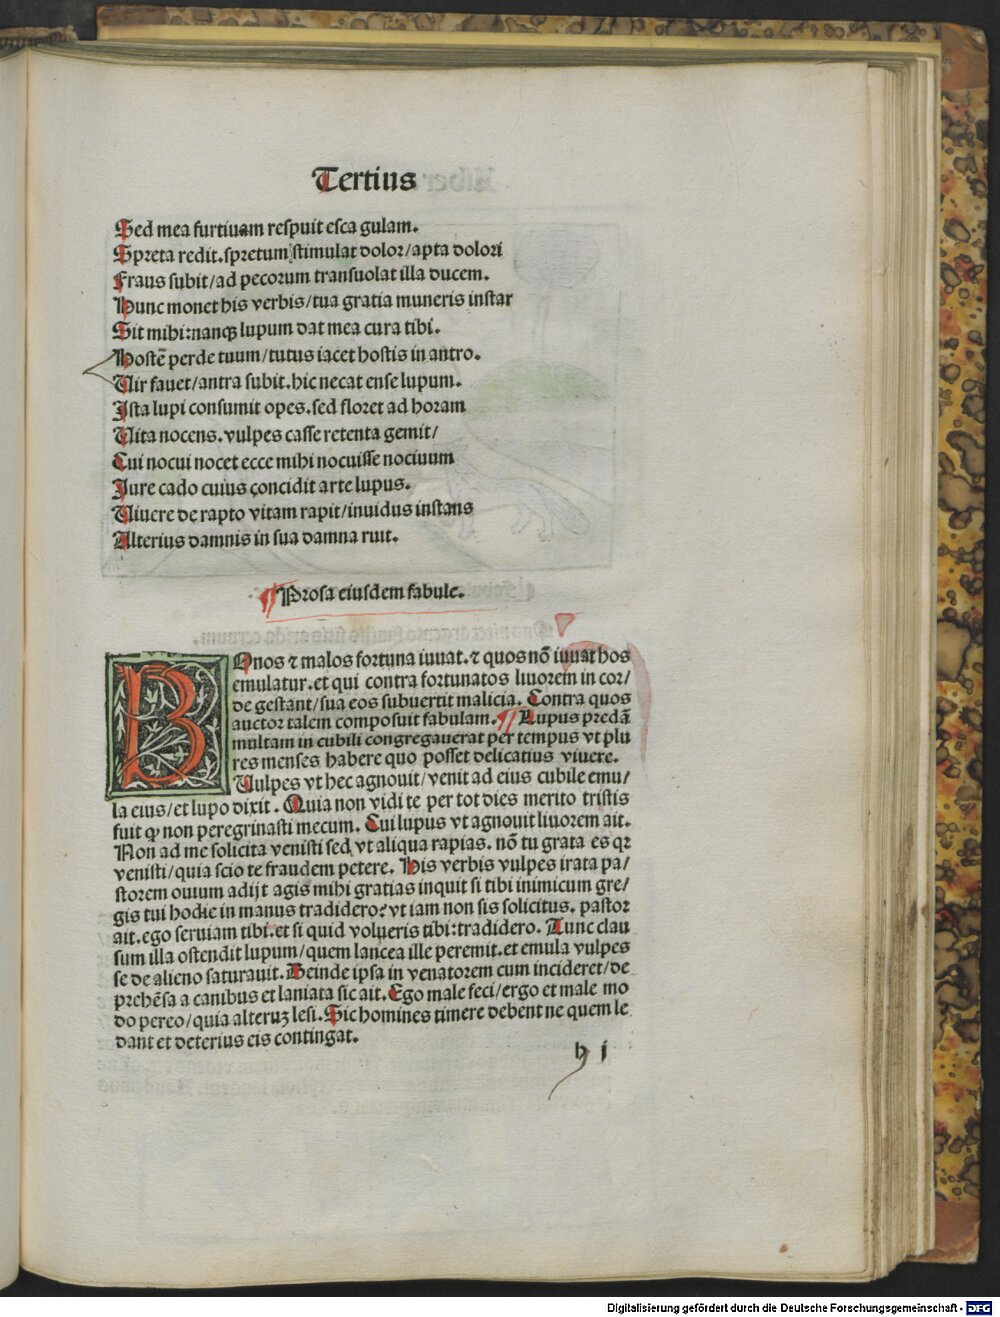 Tertius
Sed mea furtiuam respuit esca gulam.
Spreta redit. spretum stimulat dolor/apta dolori
Fraus subit/ad pecorum transuolat illa ducem.
Hunc monet his verbis/tua gratia muneris instar
Sit mihi:nanqꝫ lupum dat mea cura tibi.
Hostē perde tuum/tutus iacet hostis in antro.
Uir fauet/antra subit. hic necat ense lupum.
Ista lupi consumit opes. sed floret ad horam
Uita nocens. vulpes casse retenta gemit/
Cui nocui nocet ecce mihi nocuisse nociuum
Jure cado cuius concidit arte lupus.
Uiuere de rapto vitam rapit/inuidus instans
Alterius damnis in sua damna ruit.
¶ Prosa eiusdem fabule.
BOnos ⁊ malos fortuna iuuat. ⁊ quos nō iuuat hos
emulatur. et qui contra fortunatos liuorem in cor/
de gestant/sua eos subuertit malicia. Contra quos
auctor talem composuit fabulam. ¶ Lupus predā
multam in cubili congregauerat per tempus vt plu
res menses habere quo posset delicatius viuere.
Uulpes vt hec agnouit/venit ad eius cubile emu/
la eius/et lupo dixit. Quia non vidi te per tot dies merito tristis
fuit ꝙ non peregrinasti mecum. Cui lupus vt agnouit liuorem ait.
Non ad me solicita venisti sed vt aliqua rapias. nō tu grata es qꝛ
venisti/quia scio te fraudem petere. His verbis vulpes irata pa/
storem ouium adijt agis mihi gratias inquit si tibi inimicum gre/
gis tui hodie in manus tradidero? vt iam non sis solicitus. pastor
ait. ego seruiam tibi. et si quid volueris tibi:tradidero. Tunc clau
sum illa ostendit lupum/quem lancea ille peremit. et emula vulpes
se de alieno saturauit. Deinde ipsa in venatorem cum incideret/de
prehēsa a canibus et laniata sic ait. Ego male feci/ergo et male mo
do pereo/quia alteruꝫ lesi. Sic homines timere debent ne quem le
dant et deterius eis contingat.
h j
Digitalisierung gefördert durch die Deutsche Forschungsgemeinschaft - DFG